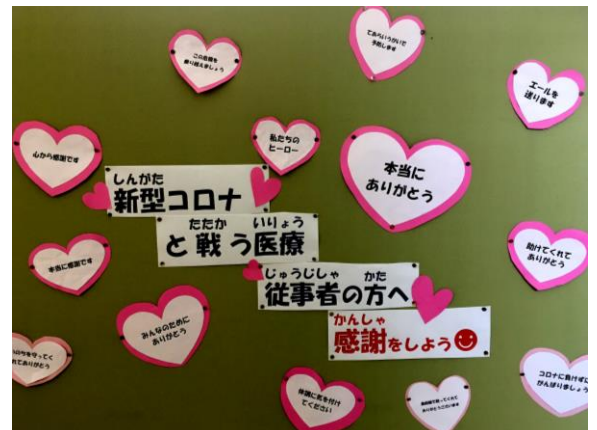 この危機を
乗り越えましょう
てあらいうがいで
予防します
エールを
送ります
心から感謝です
私たちの
ヒーロー
本当に
ありがとう
しんがた
新型コロナ
たたか いりょう
と戦う医療
じゅうじしゃ かた
従事者の方へ
かんしゃ
感謝をしよう
助けてくれて
ありがとう
本当に感謝です
みんなのために
ありがとう
のちを守ってく
れてありがとう
体調に気を付け
てください
ありがとうございます
コロナに負けずに
がんばりましょう